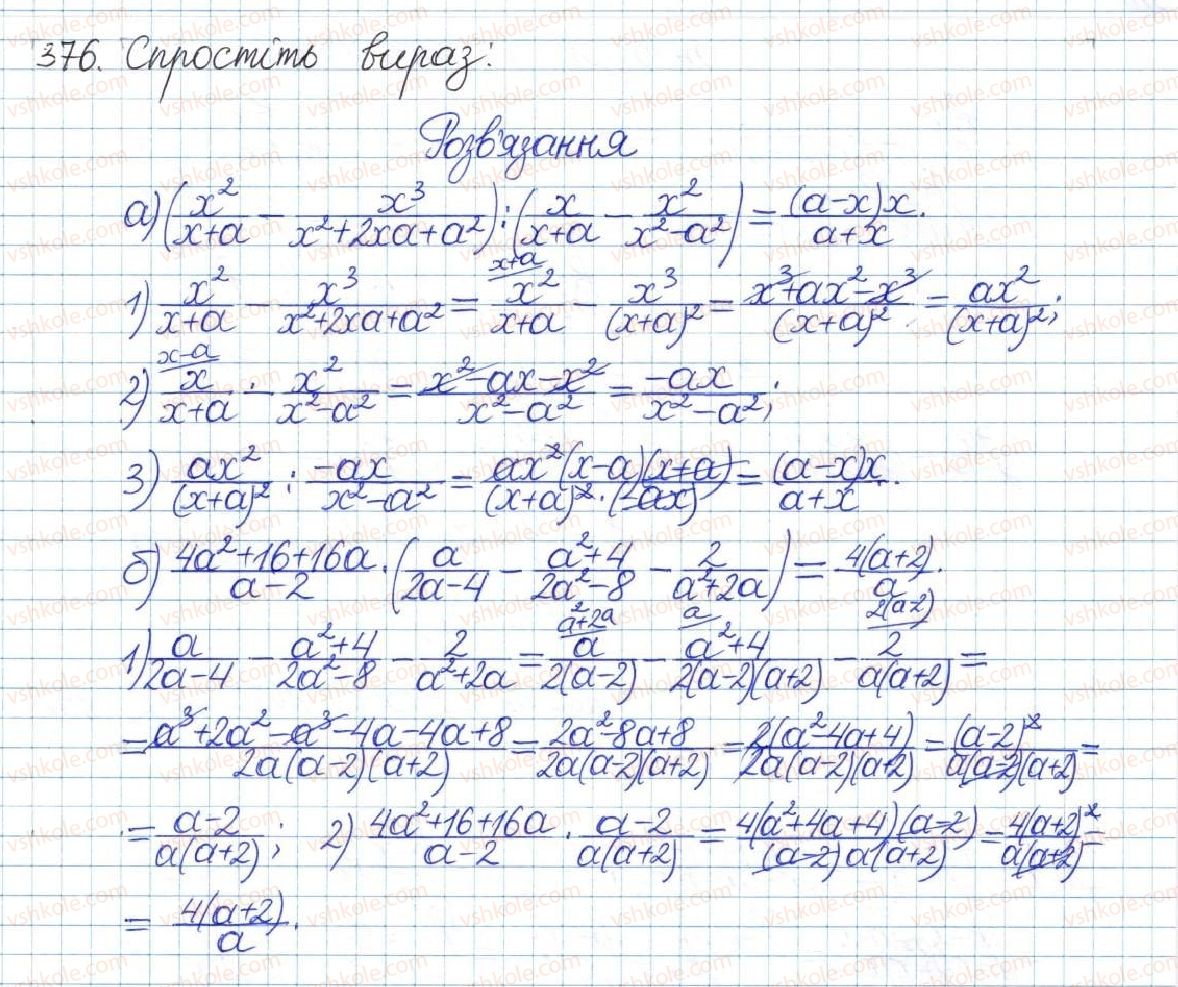 376. Спростіть вираз:
Розв'язання
а) (x²/(x+a) − x³/(x²+2xa+a²)) : (x/(x+a) − x²/(x²−a²)) = (a−x)x/(a+x).
1) x²/(x+a) − x³/(x²+2xa+a²) = x²/(x+a) ^(x+a) − x³/(x+a)² = (x³+ax²−x³)/(x+a)² = ax²/(x+a)²;
2) x/(x+a) ^(x−a) − x²/(x²−a²) = (x²−ax−x²)/(x²−a²) = −ax/(x²−a²);
3) ax²/(x+a)² : −ax/(x²−a²) = ax²(x−a)(x+a)/((x+a)²·(−ax)) = (a−x)x/(a+x).
б) (4a²+16+16a)/(a−2) · (a/(2a−4) − (a²+4)/(2a²−8) − 2/(a²+2a)) = 4(a+2)/a.
1) a/(2a−4) − (a²+4)/(2a²−8) − 2/(a²+2a) = a/(2(a−2)) ^(a²+2a) − (a²+4)/(2(a−2)(a+2)) ^(a) − 2/(a(a+2)) ^(2(a−2)) =
= (a³+2a²−a³−4a−4a+8)/(2a(a−2)(a+2)) = (2a²−8a+8)/(2a(a−2)(a+2)) = 2(a²−4a+4)/(2a(a−2)(a+2)) = (a−2)²/(a(a−2)(a+2)) =
= (a−2)/(a(a+2)); 2) (4a²+16+16a)/(a−2) · (a−2)/(a(a+2)) = 4(a²+4a+4)(a−2)/((a−2)a(a+2)) = 4(a+2)²/(a(a+2)) =
= 4(a+2)/a.
vshkole.com